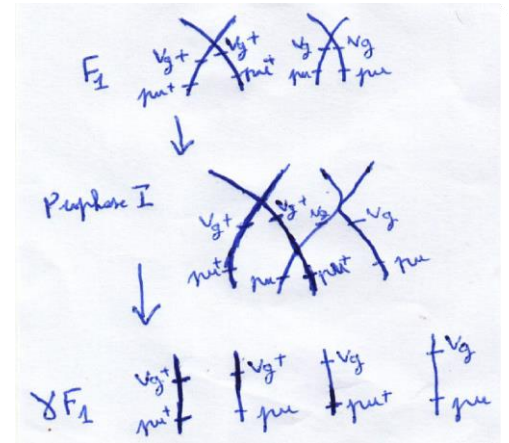 vg+ vg+ vg vg
F1 pu+ pu+ pu pu
Prophase I
vg+ vg+ vg vg
pu+ pu pu+ pu
vg+ vg+ vg vg
γF1 pu+ pu pu+ pu